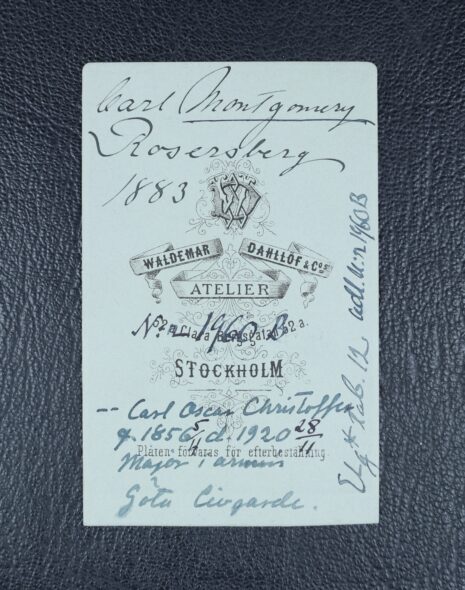 Carl Montgomery
Rosersberg
1883
WD
WALDEMAR DAHLLÖF & Co's
ATELIER
No – 1960 B
52a Clara Bergsgata 52a.
STOCKHOLM
-- Carl Oscar Christoffer
f. 1856 5/4 d. 1920 28/11
Plåten förvaras för efterbeställning
Major i armén
Göta Livgarde.
Elg* tab. 12 adl. n:r 1960 B